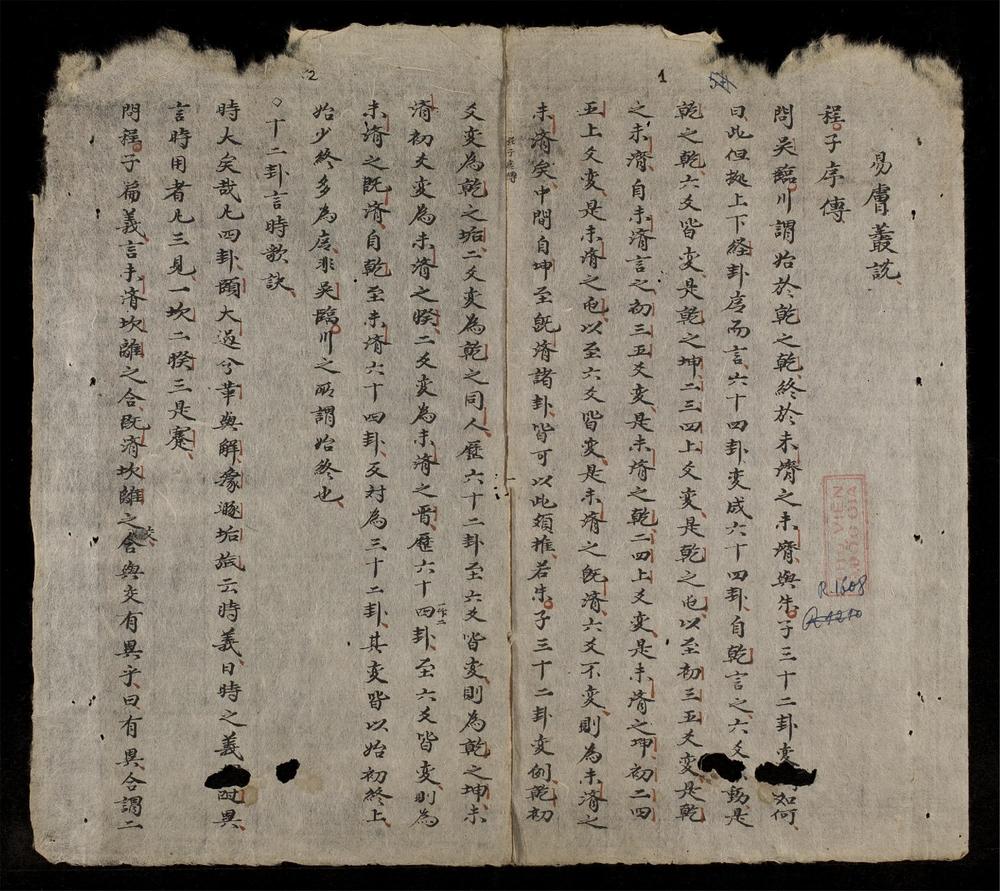 易膚叢説
程子序傳
問吴臨川謂始於乾之乾終於未濟之未濟與朱子三十二卦变如何
曰此但拠上下経卦序而言六十四卦变成六十四卦自乾言之六爻動是
乾之乾六爻皆变是乾之坤二三四上爻变是乾之屯以至初三五爻变是乾
之未濟自未濟言之初三五爻变是未濟之乾二四上爻变是未濟之坤初二四
五上爻变是未濟之屯以至六爻皆变是未濟之既濟六爻不变則為未濟之
未濟矣中間自坤至既濟諸卦皆可以此類推若朱子三十二卦变例乾初
爻变為乾之垢二爻变為乾之同人歷六十二卦至六爻皆变則為乾之坤未
濟初爻变為未濟之睽二爻变為未濟之晋歷六十四卦至六爻皆变則為
一作二
未濟之既濟自乾至未濟六十四卦反対為三十二卦其变皆以始初終上
始少終多為序非吴臨川之所謂始終也
○十二卦言時歌訣
時大矣哉凡四卦頤大過兮革與解豫遯垢旅云時義日時之義時異
言時用者凡三見一坎二睽三是蹇
問程子篇義言未濟坎離之合既濟坎離之交合與交有異乎曰有異合謂二
1
2
54
THƯ VIỆN
QUỐC GIA
R.1608